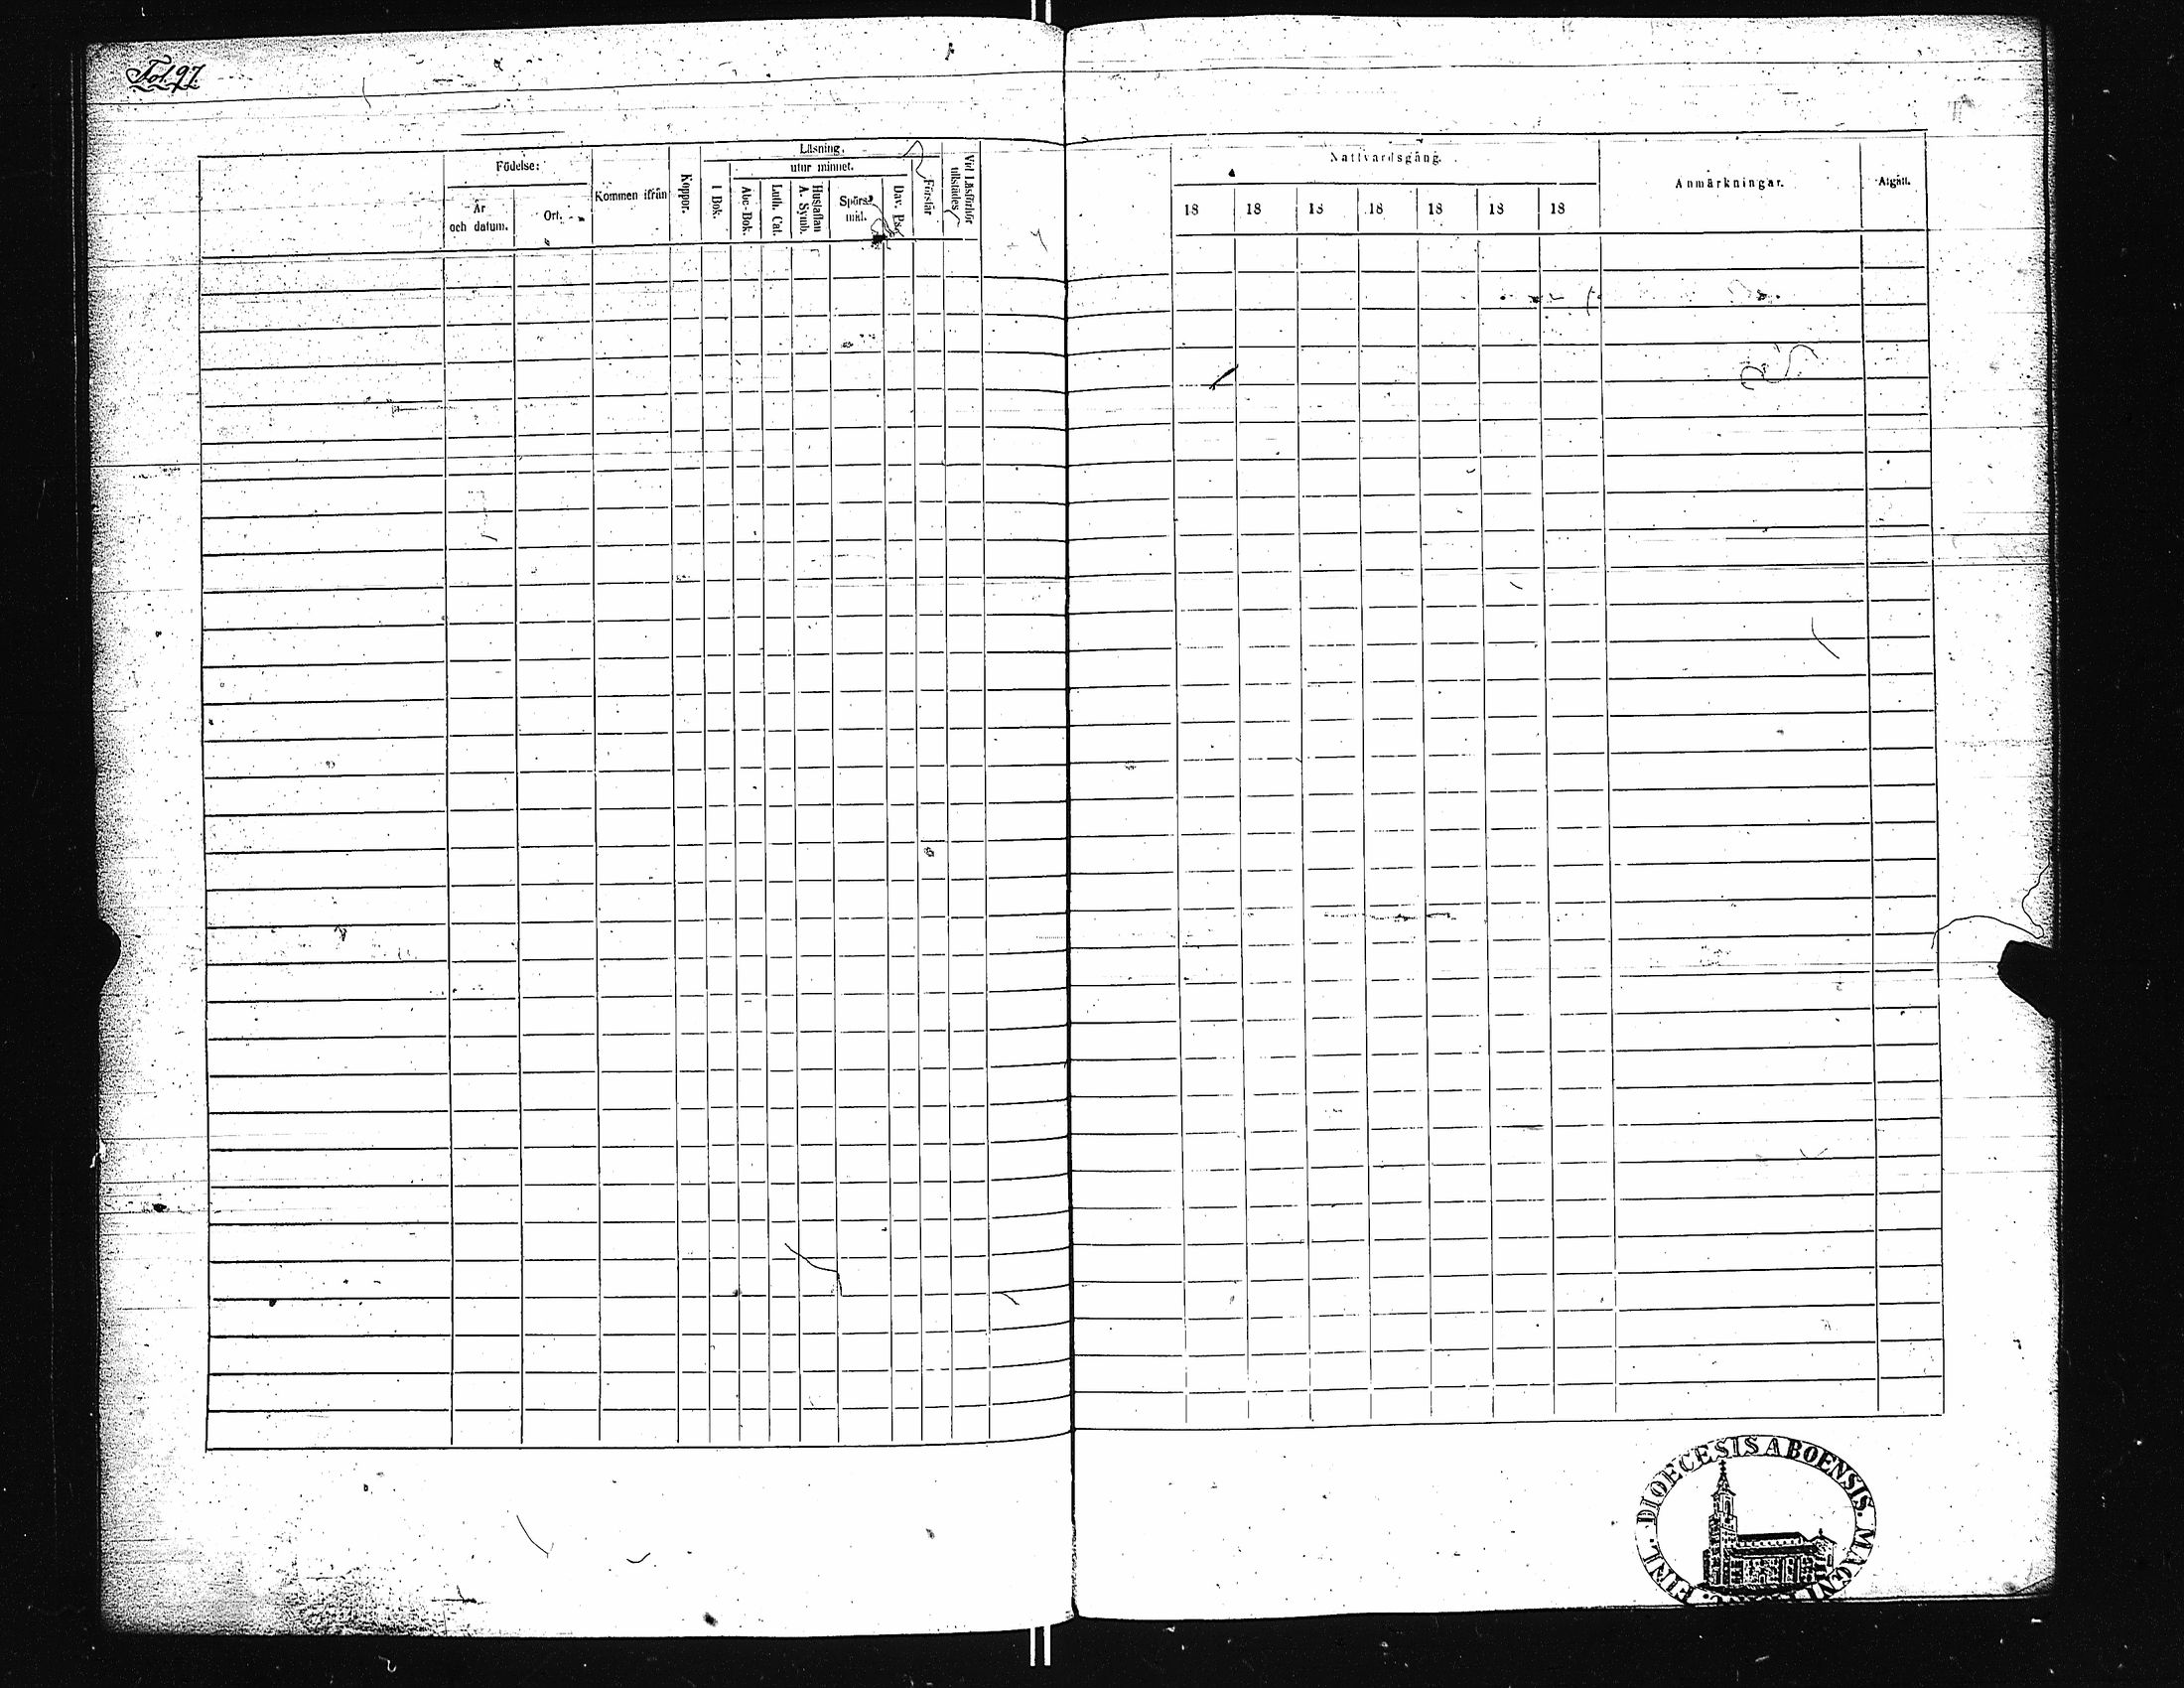 Fol. 97
Födelse:
År
och datum.
Ort.
Kommen ifrån
Koppor.
Läsning.
I Bok.
utur minnet.
Abc-Bok.
Luth. Cat.
Hustaflan
A. Symb.
Spörs-
mål.
Dav. Ps.
Förstår
Vid Läsförhör
tillstädes
Nattvardsgång.
18 18 18 18 18 18 18
Anmärkningar.
Afgått.
DIOECESIS ABOENSIS. FINL.